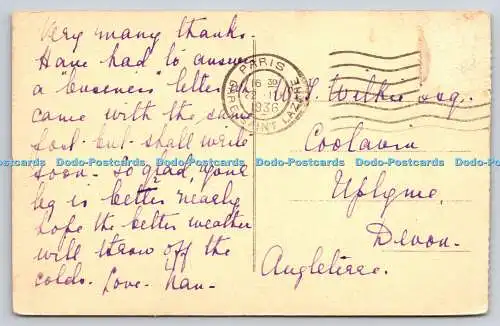 Very many thanks.
Have had to answer
a "business" letter
came with the same
post - but - shall write
soon. So glad your
leg is better nearly
hope the better weather
will throw off the
colds. Love. Nan.
PARIS
GARE SAINT LAZARE
16 30
1936
Wilkie Esq.
Coolavin
Uplyme,
Devon.
Angleterre.
Dodo-Postcards Dodo-Postcards Dodo-Postcards Dodo-Postcards Dodo-Postcards Dodo-Postcards